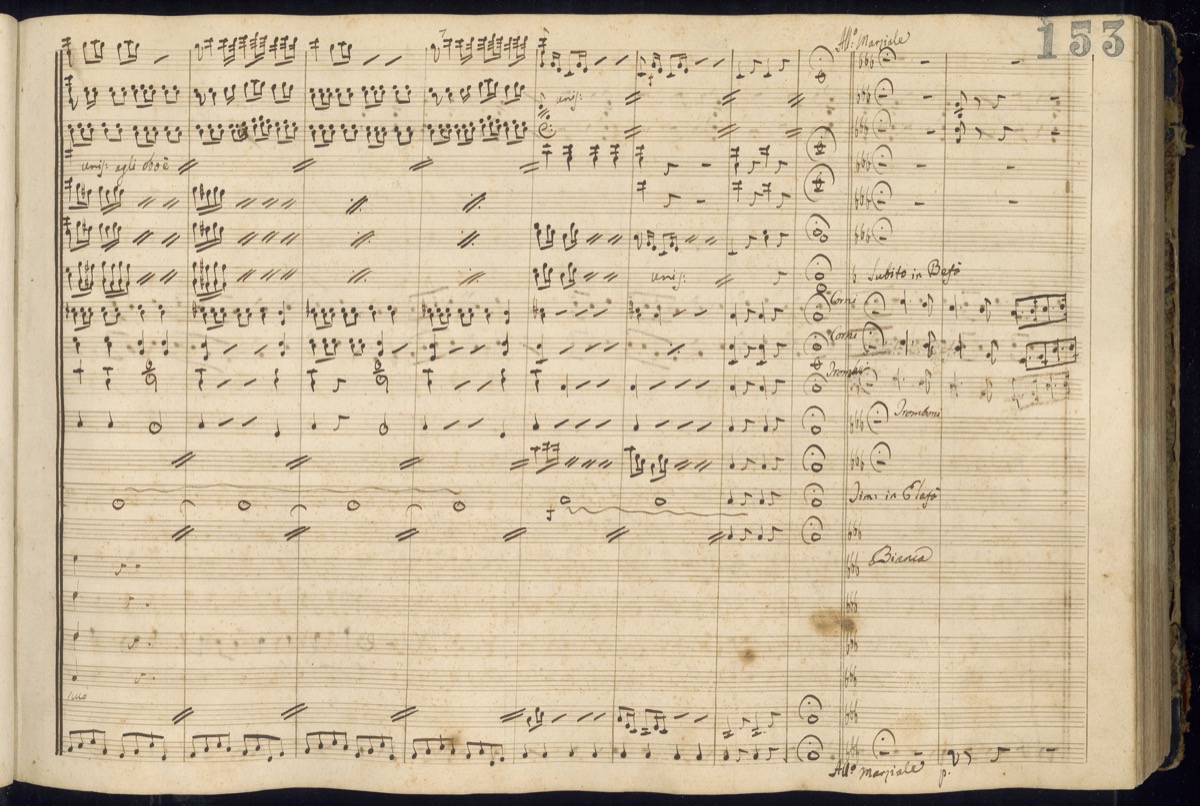 153
All.º Marziale
7
unis:
unis: agli oboè
unis:
Subito in Befà
Corni
Corni
Trombe
Tromboni
Timi in Elafà
Bianca
All.º Marziale
p.